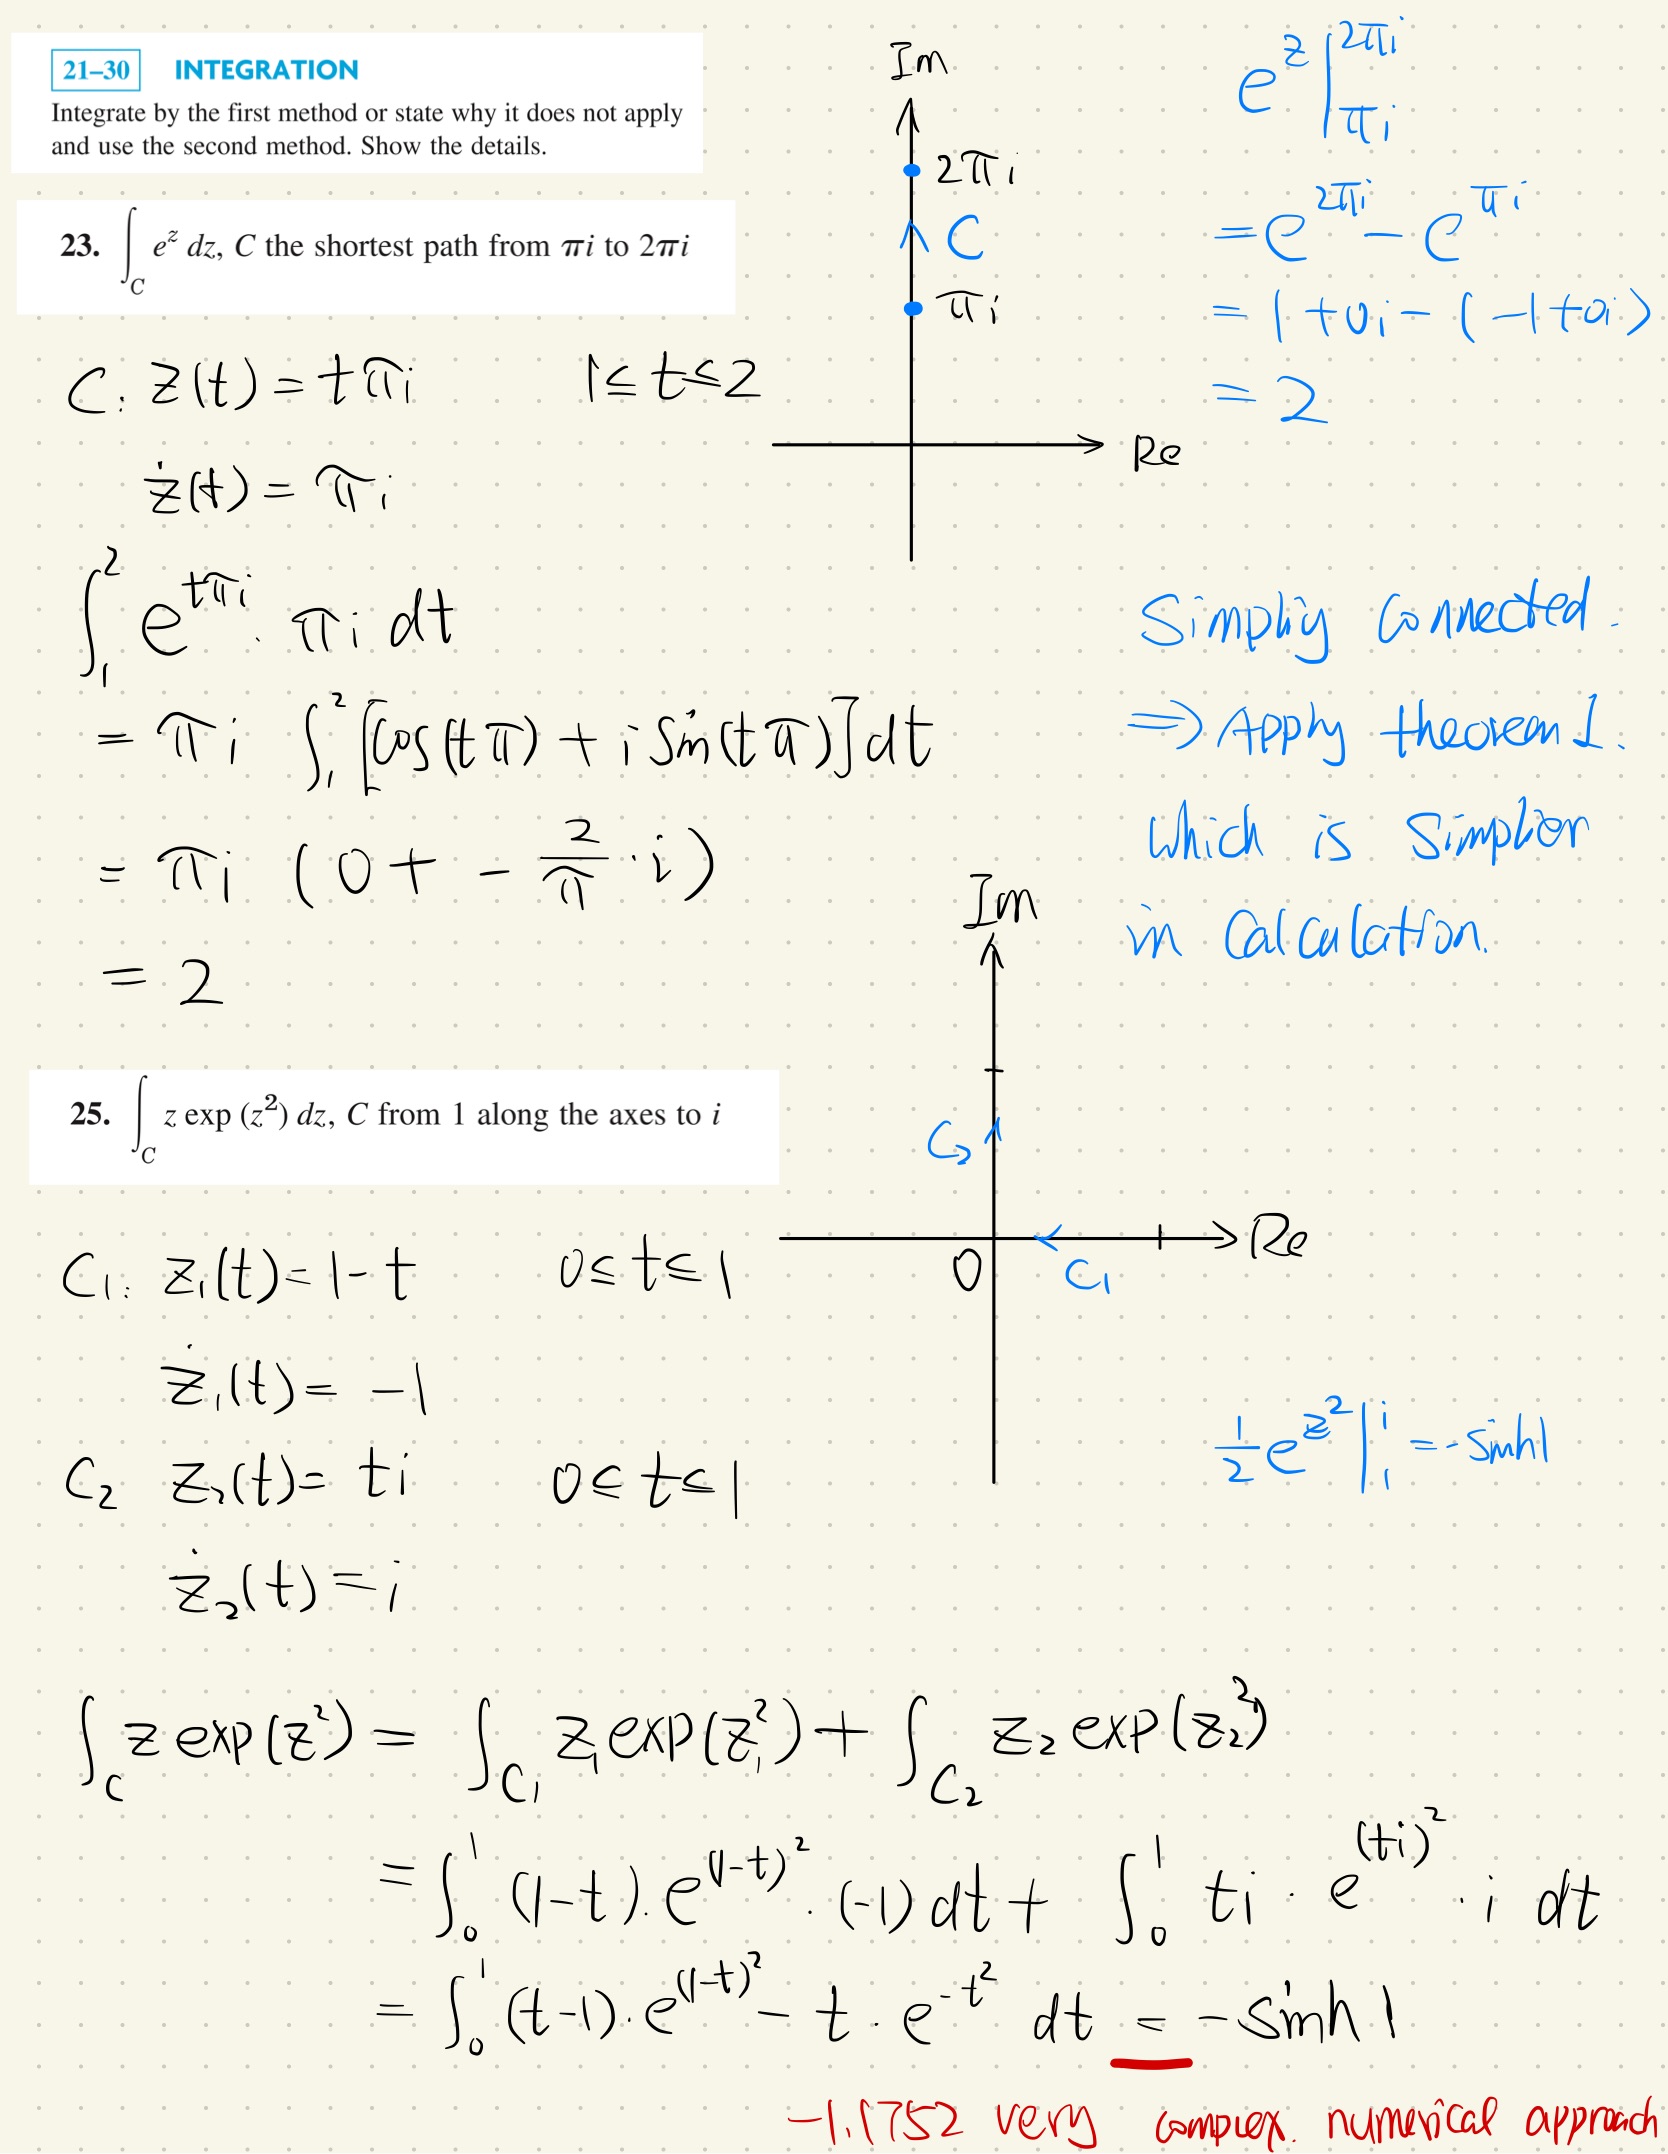 21–30 INTEGRATION
Integrate by the first method or state why it does not apply
and use the second method. Show the details.
23. ∫_C e^z dz, C the shortest path from πi to 2πi
Im
2πi
C
πi
Re
e^z |_{πi}^{2πi}
= e^{2πi} − e^{πi}
= 1+0i − (−1+0i)
= 2
C: z(t) = tπi 1 ≤ t ≤ 2
ż(t) = πi
∫_1^2 e^{tπi} · πi dt
= πi ∫_1^2 [cos(tπ) + i sin(tπ)] dt
= πi (0 + − 2/π · i)
= 2
Simpliy connected.
⇒ Apply theorem 1.
which is simplier
in calculation.
25. ∫_C z exp (z²) dz, C from 1 along the axes to i
Im
C₂
Re
0
C₁
C₁: z₁(t) = 1 − t 0 ≤ t ≤ 1
ż₁(t) = −1
C₂ z₂(t) = ti 0 ≤ t ≤ 1
ż₂(t) = i
1/2 e^{z²} |_1^i = − sinh1
∫_C z exp(z²) = ∫_{C₁} z₁ exp(z₁²) + ∫_{C₂} z₂ exp(z₂²)
= ∫_0^1 (1−t) · e^{(1−t)²} · (−1) dt + ∫_0^1 ti · e^{(ti)²} · i dt
= ∫_0^1 (t−1) · e^{(1−t)²} − t · e^{−t²} dt = − sinh 1
−1.1752 very complex. numerical approach